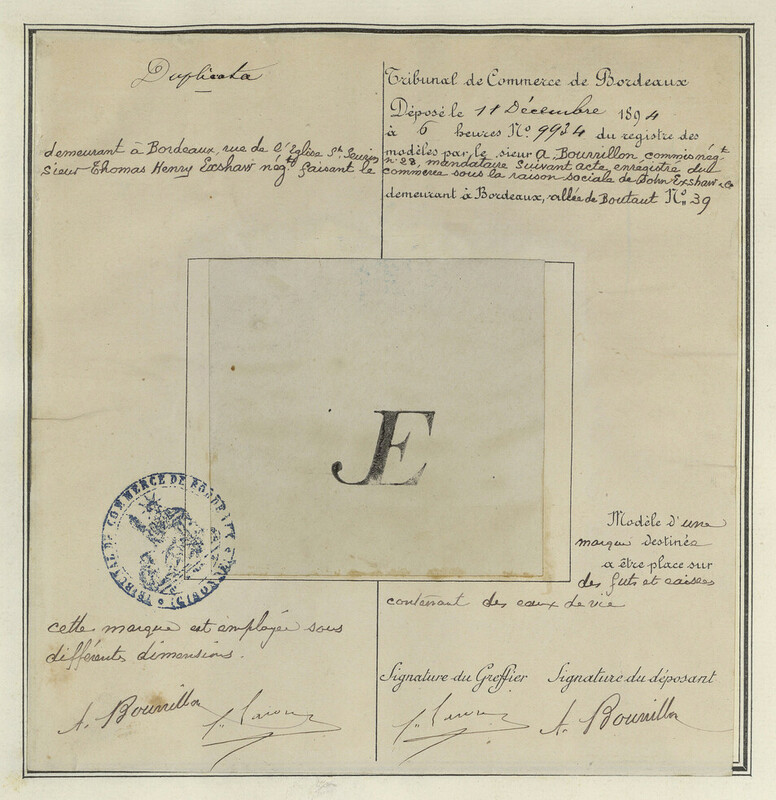 Duplicata
Tribunal de Commerce de Bordeaux
Déposé le 11 Décembre 1894
à 6 heures No. 9934 du registre des
demeurant à Bordeaux, rue de l'Eglise St. Seurin
modèles par le sieur A. Bourrillon commis négt
n° 28, mandataire suivant acte enregistré du
sieur Thomas Henry Exshaw négt faisant le
commerce sous la raison sociale de John Exshaw & Co
demeurant à Bordeaux, allée de Boutaut No 39
JE
TRIBUNAL DE COMMERCE DE BORDEAUX
Modèle d'une
marque destinée
a être place sur
des futs et caisses
contenant des eaux de vie
cette marque est employée sous
différentes dimensions.
Signature du Greffier Signature du déposant
A. Bourrillon
A. Bourrillon